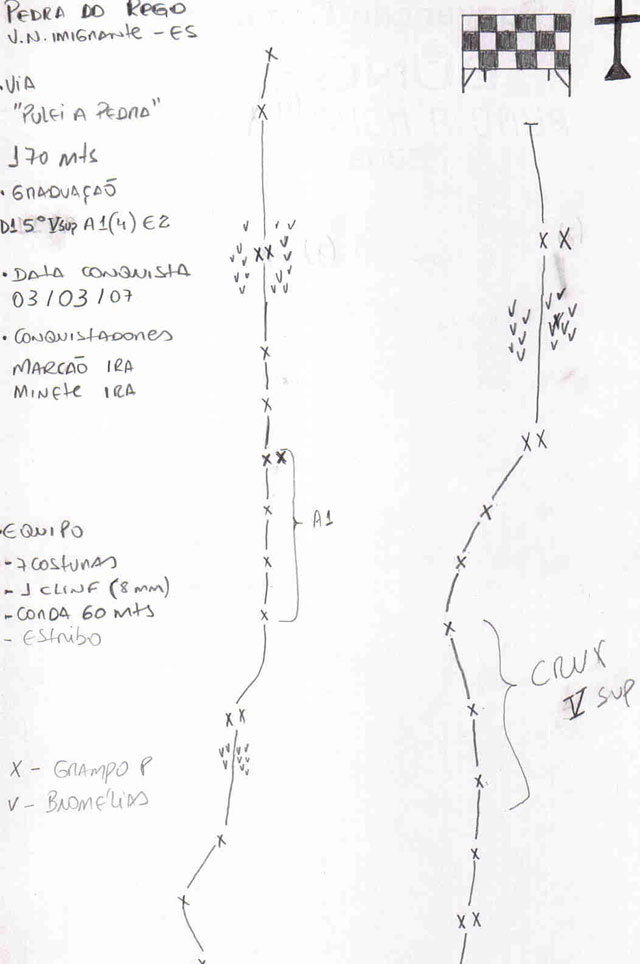 PEDRA DO REGO
V.N. IMIGRANTE - ES
• VIA
"PULEI A PEDRA"
170 mts
• GRADUAÇÃO
D1 5º Vsup A1(4) E2
• DATA CONQUISTA
03/03/07
• CONQUISTADORES
MARCÃO IRA
MINETE IRA
• EQUIPO
- 7 COSTURAS
- 1 CLIFF (8mm)
- CORDA 60 mts
- ESTRIBO
X - GRAMPO P
V - BROMÉLIAS
A1
CRUX
V SUP